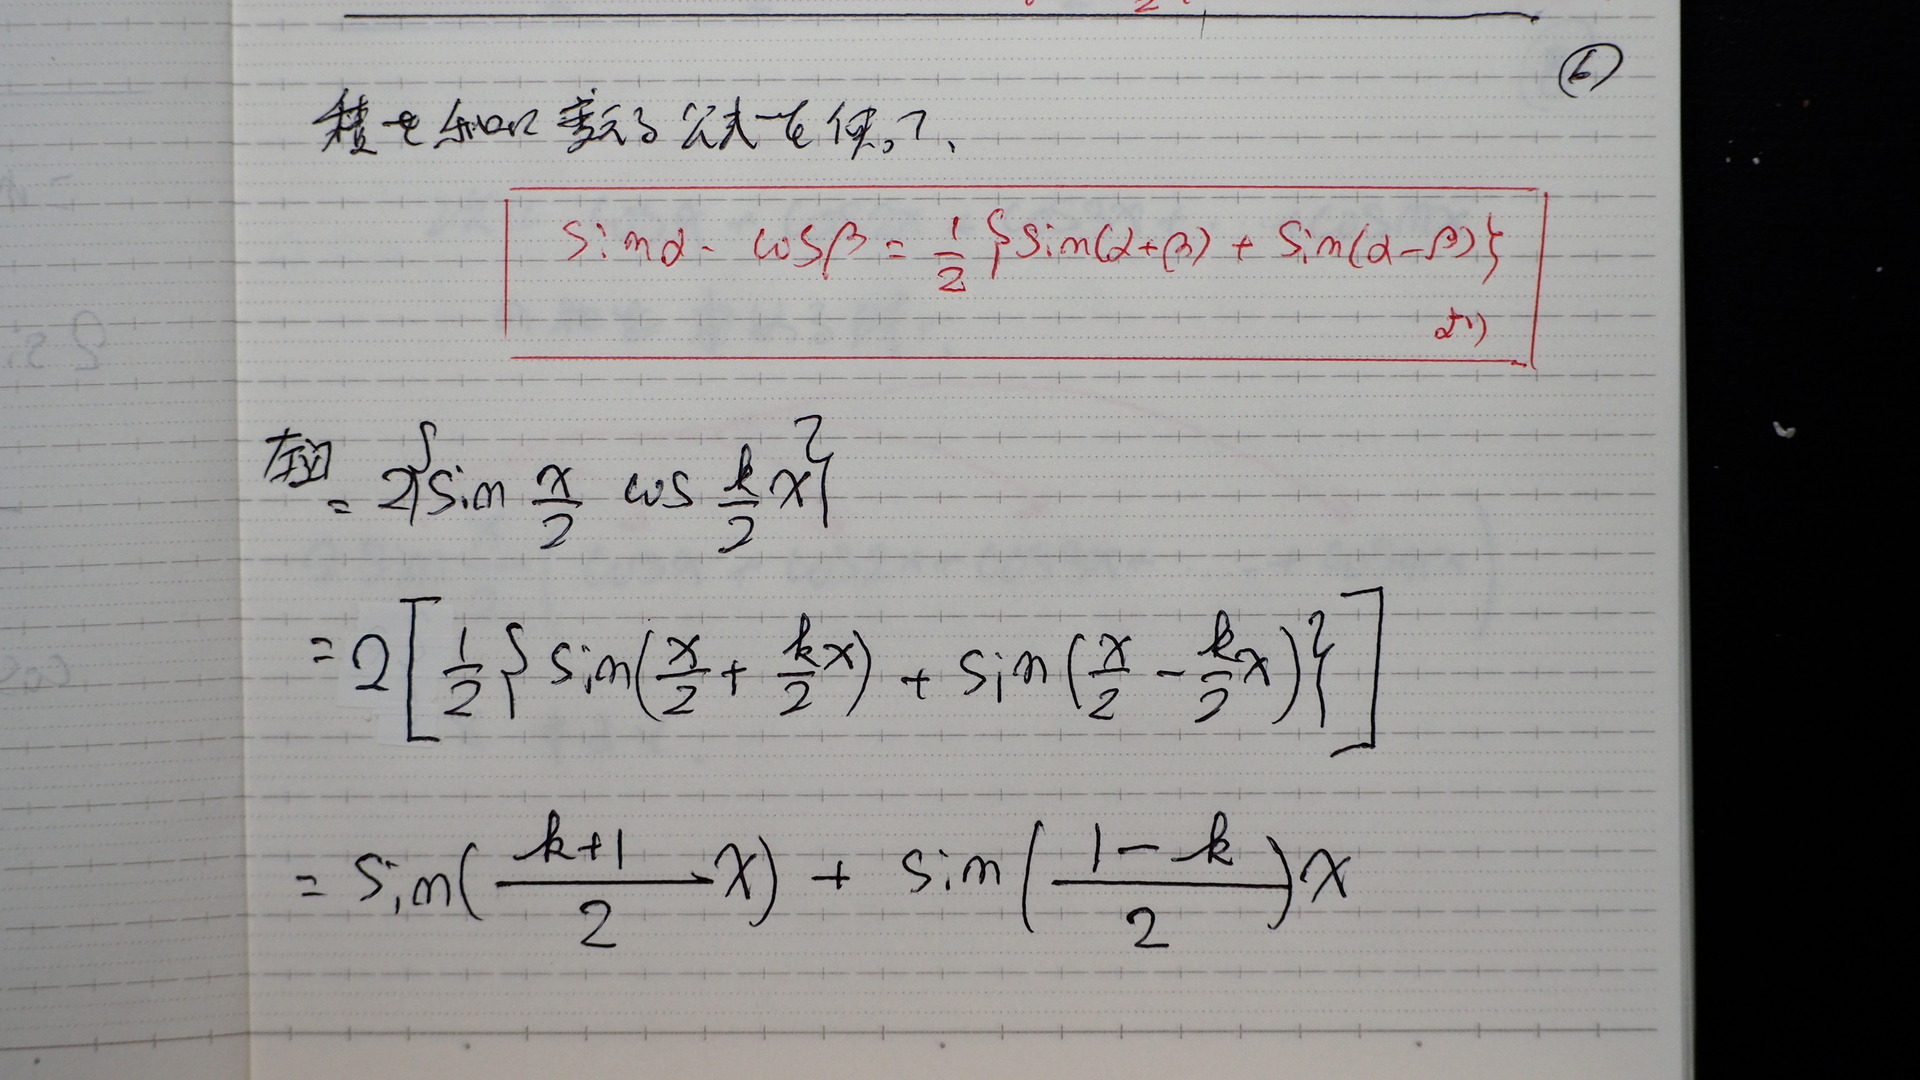 ⑥
積を和に変える公式を使って、
sinα・cosβ = 1/2 {sin(α+β) + sin(α-β)}
より
左辺 = 2{sin x/2 cos k/2 x}
= 2[1/2 {sin(x/2 + k/2 x) + sin(x/2 - k/2 x)}]
= sin(k+1/2 x) + sin(1-k/2)x